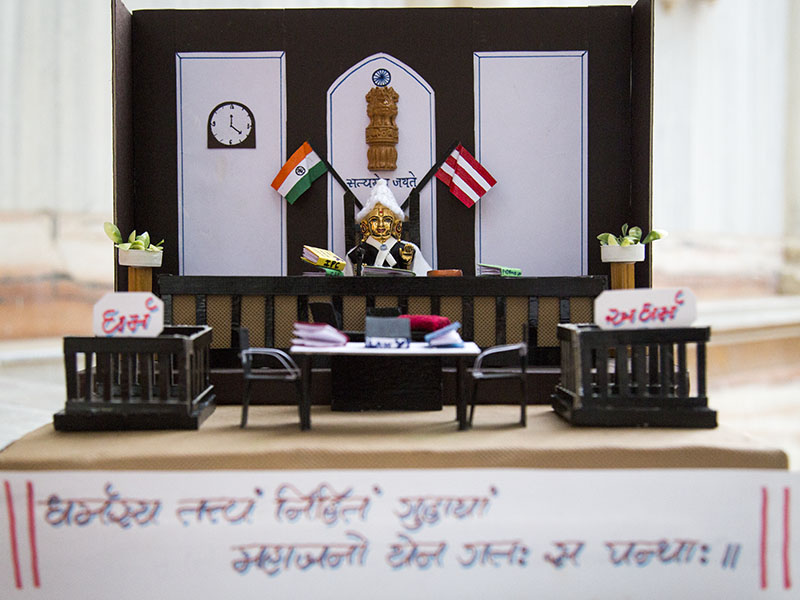 सत्यमेव जयते
IPC
ધર્મ
અધર્મ
LAW
धर्मस्य तत्त्वं निहितं गुहायां
महाजनो येन गतः स पन्थाः ॥